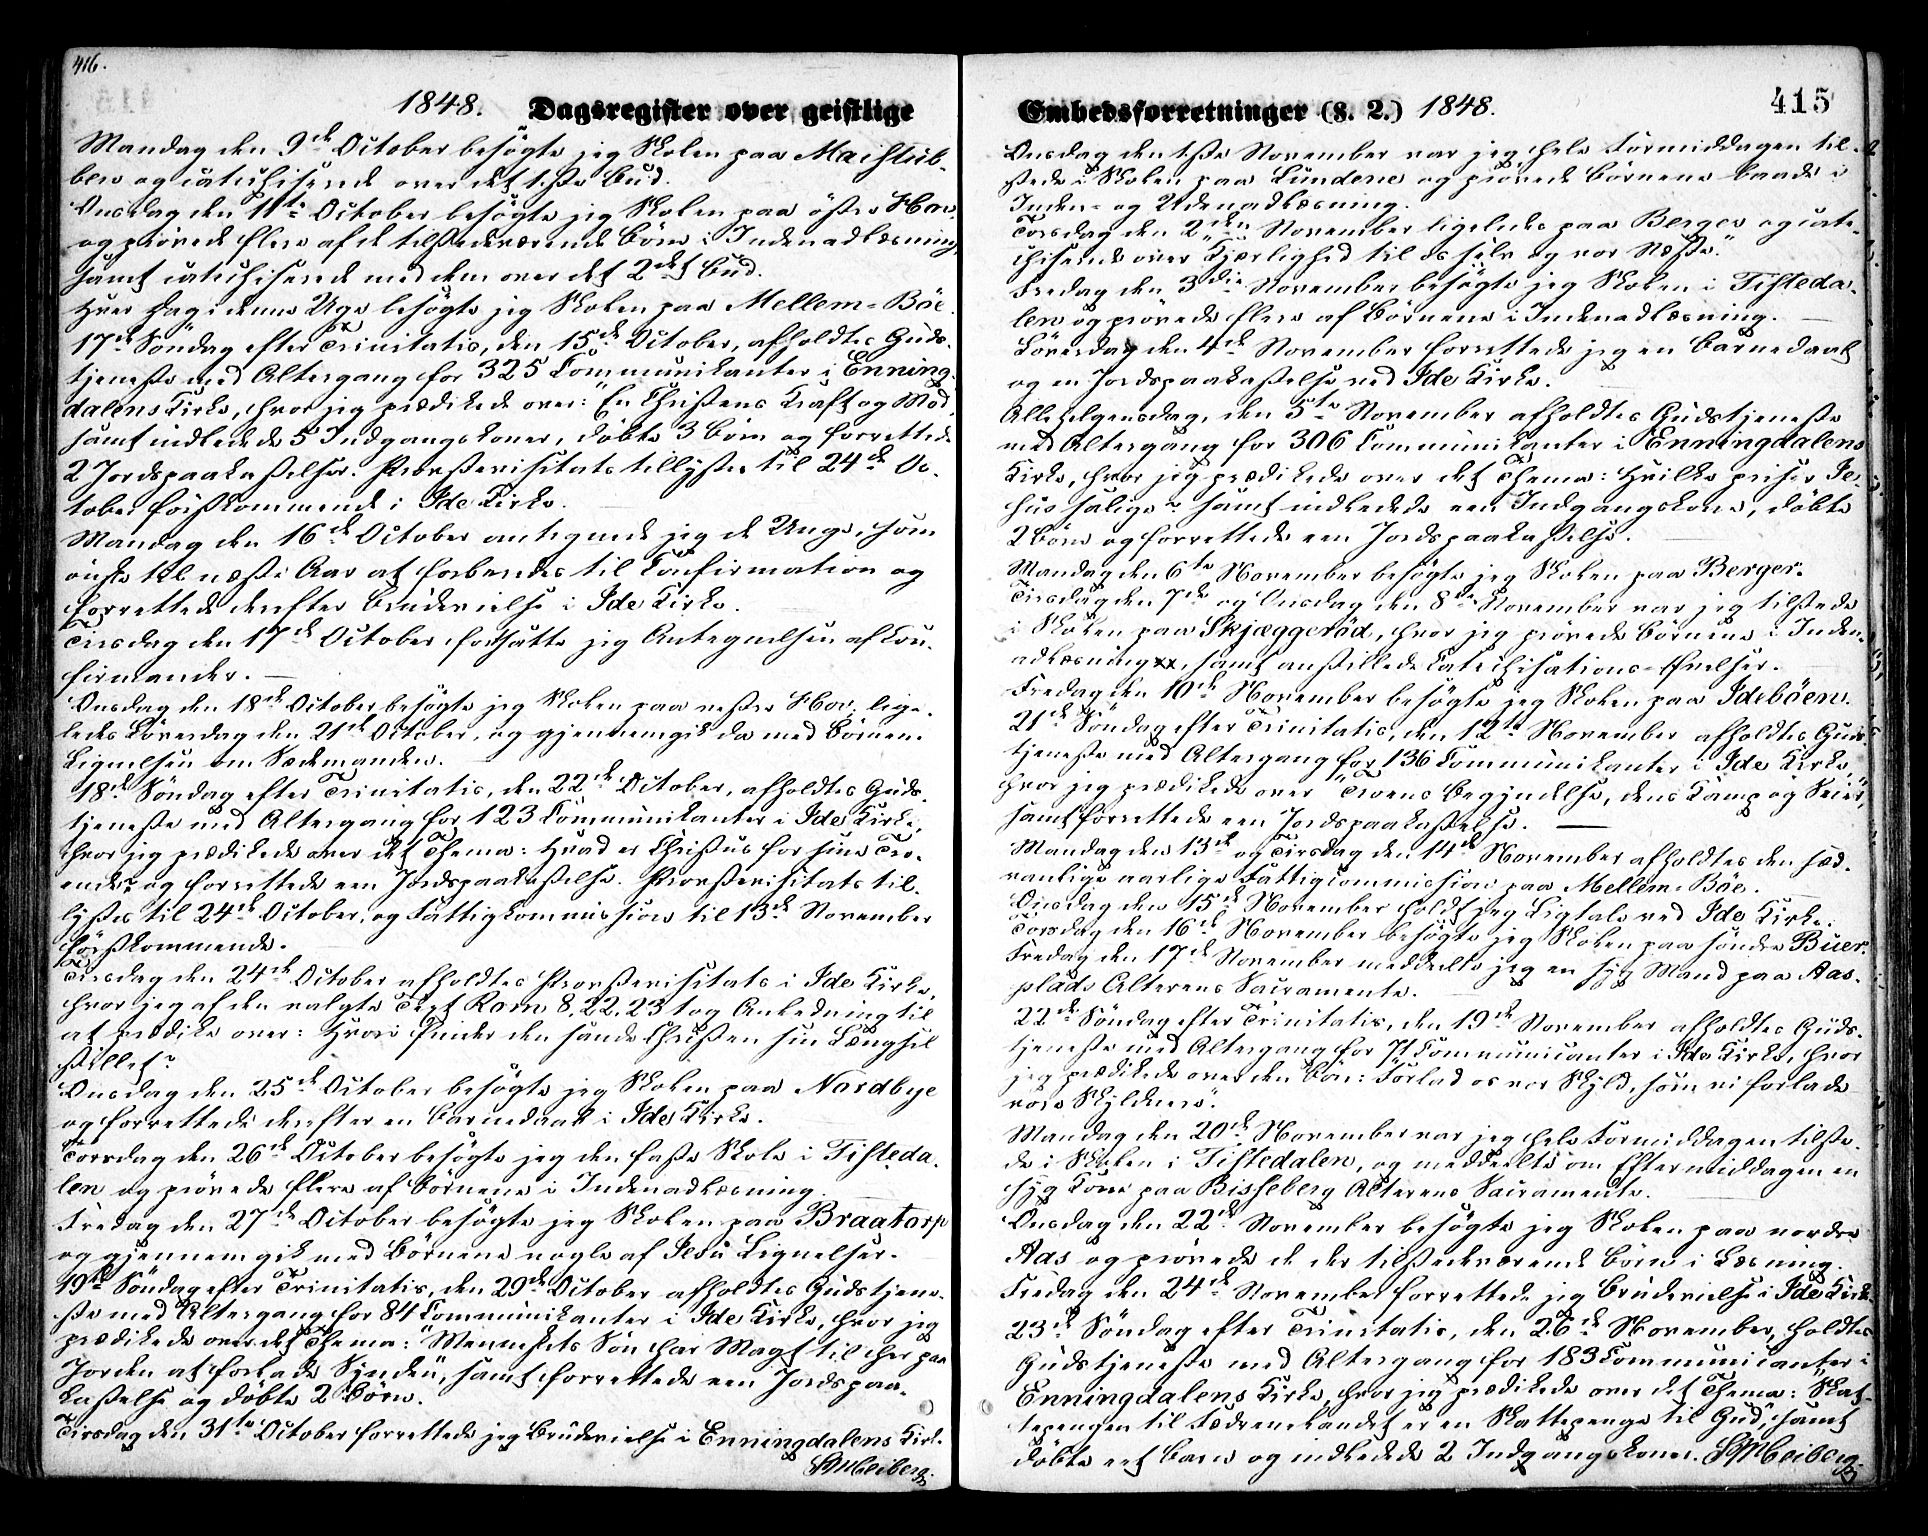 416.
1848. Dagsregister over geistlige
Mandag den 9de October besøgte jeg Skolen paa Maistub-
ben og catechiserede over det 1ste Bud.
Onsdag den 11te October besøgte jeg Skolen paa østre Hov,
og prövede flere af de tilstedeværende Börn i Indenadlæsning,
samt catechiserede med dem over det 2det Bud.
Hver Dag i denne Uge besøgte jeg Skolen paa Mellem-Böe.
17de Søndag efter Trinitatis, den 15de October, afholdtes Guds-
tjeneste med Altergang for 325 Communikanter i Enning-
dalens Kirke, hvor jeg prædikede over: "En Christens Kraft og Mod",
samt indledede 5 Indgangskoner, döbte 3 Börn og forrettede
2 Jordspaakastelser. Provstevisitats tillystes til 24de Oc-
tober förstkommende i Ide Kirke.
Mandag den 16de October antegnede jeg de Unge, som
önske til næste Aar at forberedes til Confirmation og
forrettede derefter Brudevielse i Ide Kirke.
Tirsdag den 17de October fortsatte jeg Antegnelsen af Con-
firmander.
Onsdag den 18de October besøgte jeg Skolen paa vestre Hov, lige-
ledes Löverdag den 21de October, og gjennemgik da med Börnene
Lignelsen om Sædemanden.
18de Søndag efter Trinitatis, den 22de October, afholdtes Guds-
tjeneste med Altergang for 123 Communikanter i Ide Kirke,
hvor jeg prædikede over det Thema: Hvad er Christus for sine Tro-
ende? og forrettede een Jordspaakastelse. Provstevisitats til-
lystes til 24de October, og Fattigkommission til 13de November
förstkommende.
Tirsdag den 24de October afholdtes Provstevisitats i Ide Kirke,
hvor jeg af den valgte Text Rom 8, 22, 23 tog Anledning til
at prædike over: Hvori finder den sande Christen sin Længsel
stillet?
Onsdag den 25de October besøgte jeg Skolen paa Nordbye
og forrettede derefter en Barnedaab i Ide Kirke.
Torsdag den 26de October besøgte jeg den faste Skole i Tisteda-
len og prövede flere af Börnene i Indenadlæsning.
Fredag den 27de October besøgte jeg Skolen paa Braatorp
og gjennemgik med Börnene nogle af Jesu Lignelser.
19de Söndag efter Trinitatis, den 29de October afholdtes Gudstjene-
ste med Altergang for 84 Communikanter i Ide Kirke, hvor jeg
prædikede over det Thema: "Menneskets Sön har Magt til her paa
Jorden at forlade Synden", samt forrettede een Jordspaa-
kastelse og döbte 2 Börn.
Tirsdag den 31te October forrettede jeg Brudevielse i Enningdalens Kirke.
Heiberg.
Embedsforretninger (§. 2.) 1848.
415
Onsdag den 1ste November var jeg hele Formiddagen til-
stede i Skolen paa Lundene og prövede Börnene baade i
Inden- og Udenadlæsning.
Torsdag den 2den November ligeledes paa Berger og cate-
chiserede over "Kjærlighed til os selv og vor Næste".
Fredag den 3die November besøgte jeg Skolen i Tisteda-
len og prövede flere af Börnene i Indenadlæsning.
Löverdag den 4de November forrettede jeg en Barnedaab
og en Jordspaakastelse ved Ide Kirke.
Allehelgensdag, den 5te November afholdtes Gudstjeneste
med Altergang for 306 Communikanter i Enningdalens
Kirke, hvor jeg prædikede over det Thema: Hvilke priser Je-
sus salige? samt indledede een Indgangskone, döbte
2 Börn og forrettede een Jordspaakastelse.
Mandag den 6te November besøgte jeg Skolen paa Berger.
Tirsdag den 7de og Onsdag den 8de November var jeg tilstede
i Skolen paa Skjæggeröd, hvor jeg prövede Börnene i Inden-
adlæsning, samt anstillede Catechisations-Övelser.
Fredag den 10de November besøgte jeg Skolen paa Ideböen.
21de Söndag efter Trinitatis, den 12te November afholdtes Guds-
tjeneste med Altergang for 136 Communikanter i Ide Kirke,
hvor jeg prædikede over "Troens Begyndelse, dens Kamp og Seier",
samt forrettede een Jordspaakastelse.
Mandag den 13de og Tirsdag den 14de November afholdtes den sæd-
vanlige aarlige Fattigcommission paa Mellem-Böe.
Onsdag den 15de November holdt jeg Ligtale ved Ide Kirke.
Torsdag den 16de November besøgte jeg Skolen paa söndre Buer.
Fredag den 17de November meddeelte jeg en syg Mand paa Aas-
plads Alterens Sacramente.
22de Söndag efter Trinitatis, den 19de November afholdtes Guds-
tjeneste med Altergang for 71 Communicanter i Ide Kirke, hvor
jeg prædikede over den Bön: "Forlad os vor Skyld, som vi forlade
vore Skyldnere".
Mandag den 20de November var jeg hele Formiddagen tilste-
de i Skolen i Tistedalen, og meddeelte om Eftermiddagen en
syg Kone paa Bisseberg Alterens Sacramente.
Onsdag den 22de November besøgte jeg Skolen paa nordre
Aas og prövede de der tilstedeværende Börn i Læsning.
Fredag den 24de November forrettede jeg Brudevielse i Ide Kirke.
23de Söndag efter Trinitatis, den 26de November, holdtes
Gudstjeneste med Altergang for 183 Communicanter i
Enningdalens Kirke, hvor jeg prædikede over det Thema: "Skat-
tepengen til Fædrenelandet er en Skattepenge til Gud", samt
döbte eet Barn og indledede 2 Indgangskoner. Heiberg.